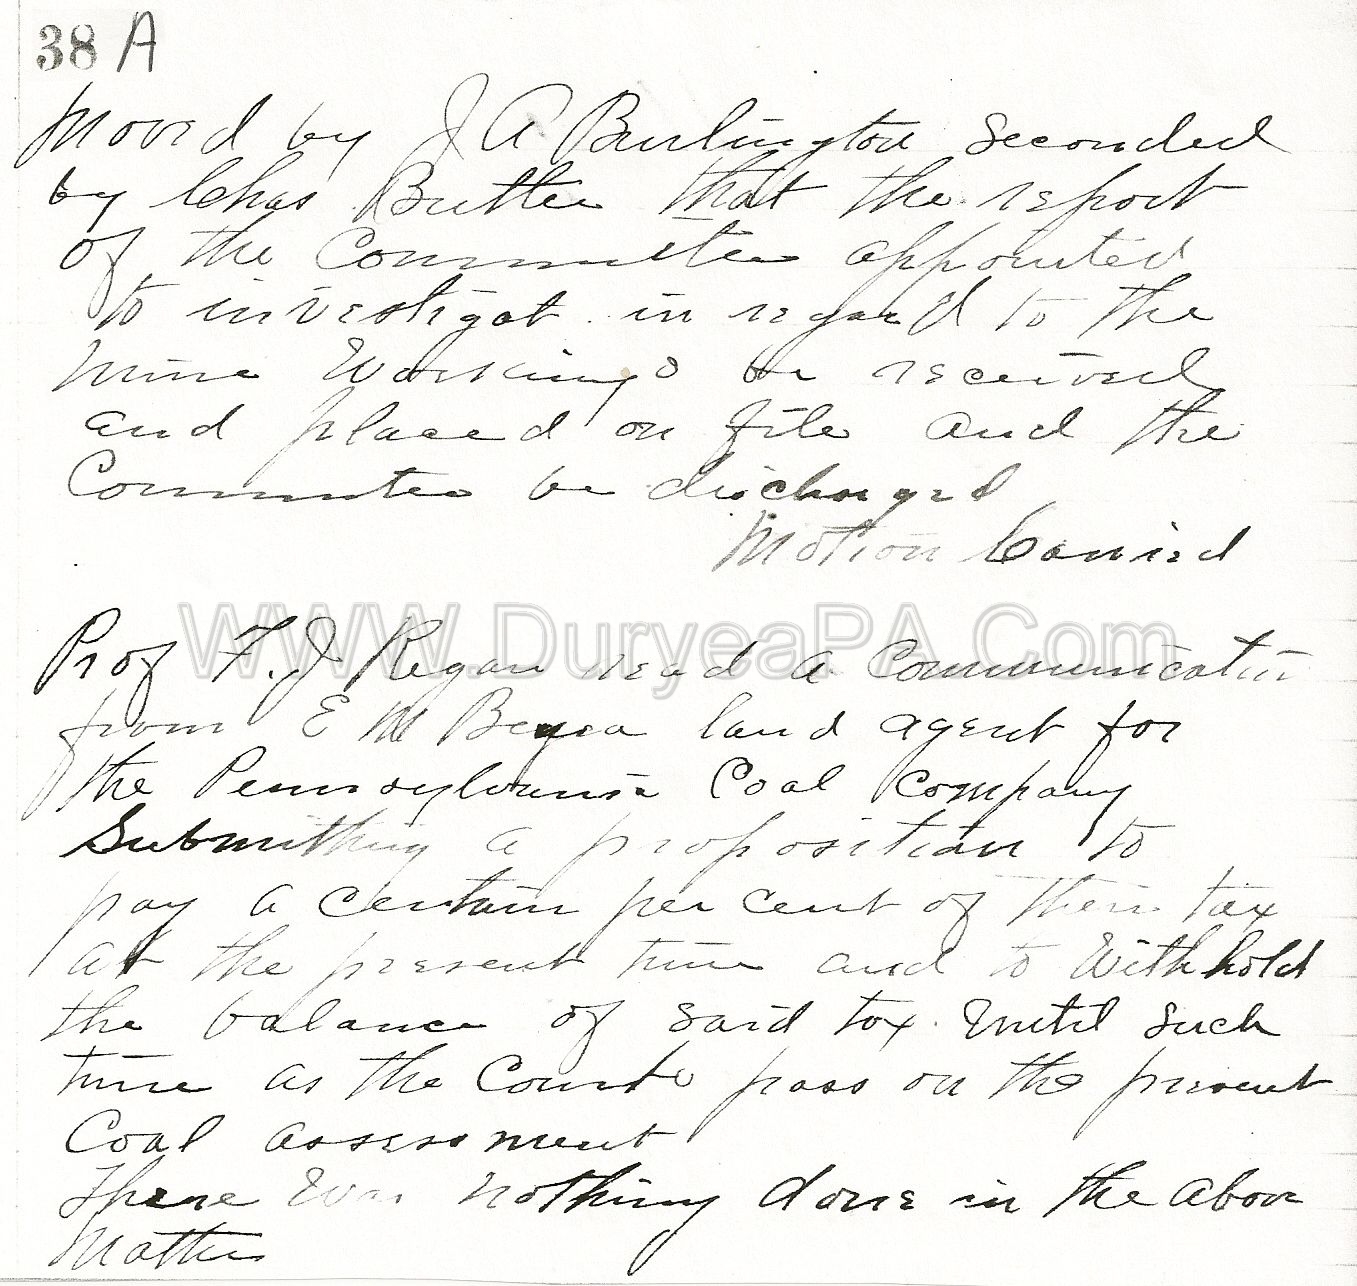 38 A
Moved by J A Burlington seconded
by Chas Butler that the report
of the Committee appointed
to investigat in regard to the
mine Workings be received
and placed on file and the
Committee be discharged
Motion Carried
WWW.DuryeaPA.Com
Prof F. J Regan read a communication
from E M land agent for
the Pennsylvania Coal company
Submitting a proposition to
pay a certain per cent of their tax
at the present time and to Withhold
the balance of said tax Until such
time as the Courts pass on the present
Coal assessment
There Was nothing done in the above
Matter